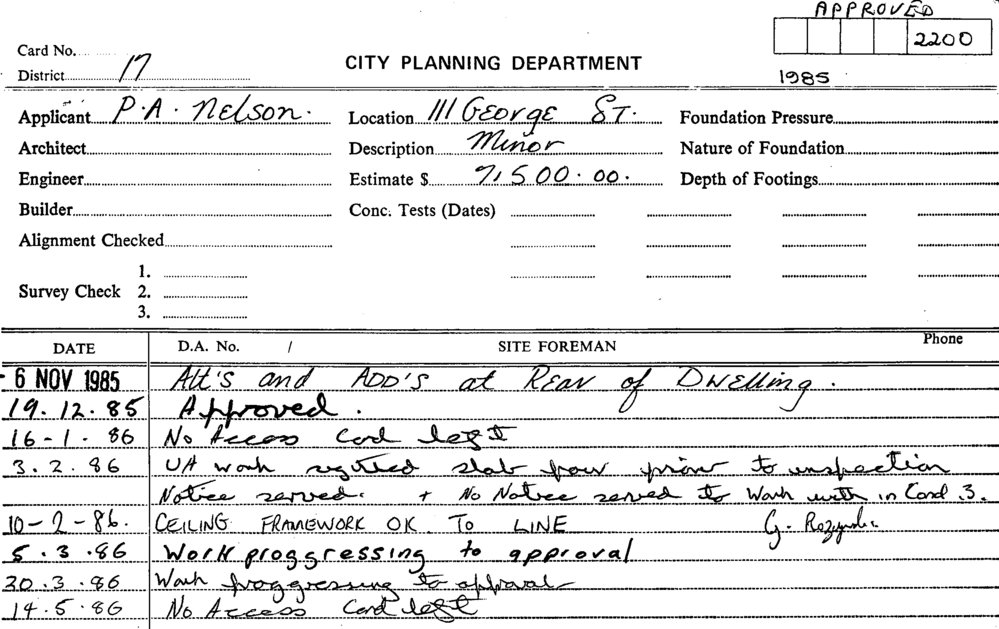 APPROVED
2200
Card No.
District 17
CITY PLANNING DEPARTMENT
1985
Applicant P.A. Nelson. Location 111 George ST. Foundation Pressure
Architect Description Minor Nature of Foundation
Engineer Estimate $ 71500.00. Depth of Footings
Builder Conc. Tests (Dates)
Alignment Checked
1.
Survey Check 2.
3.
DATE D.A. No. / SITE FOREMAN Phone
6 NOV 1985 Alt's and ADD's at Rear of Dwelling.
19.12.85 Approved.
16-1-86 No Access Card left
3.2.86 UA work slab pour prior to inspection
Notice served. + No Notice served to Work with in Cond 3.
10-2-86. CEILING FRAMEWORK OK TO LINE G.
5.3.86 Work proggressing to approval
20.3.86 Work proggressing to approval
14.5.86 No Access Card left